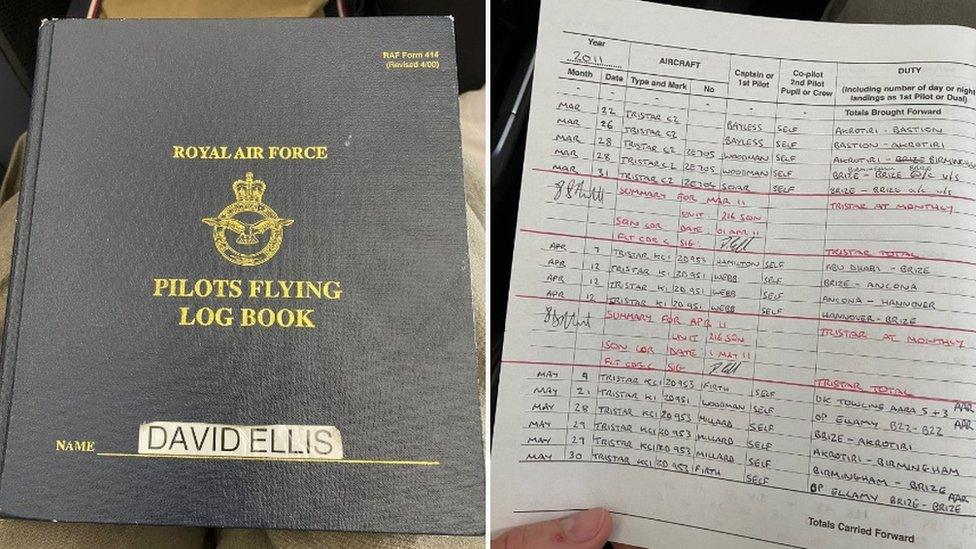 RAF Form 414
(Revised 4/00)
ROYAL AIR FORCE
PILOTS FLYING
LOG BOOK
NAME DAVID ELLIS
Year 2011 AIRCRAFT Captain or 1st Pilot Co-pilot 2nd Pilot Pupil or Crew DUTY (Including number of day or night landings as 1st Pilot or Dual)
Month Date Type and Mark No
- - - - - - Totals Brought Forward
MAR 22 TRISTAR C2 BAYLESS SELF AKROTIRI - BASTION
MAR 26 TRISTAR C2 BAYLESS SELF BASTION - AKROTIRI
MAR 28 TRISTAR C2 ZE705 WOODMAN SELF AKROTIRI - BRIZE BIRMINGHAM
MAR 28 TRISTAR C2 ZE705 WOODMAN SELF BIRMINGHAM BRIZE
BRIZE - BRIZE U/S
MAR 31 TRISTAR C2 ZE705 SELF BRIZE - BRIZE U/S
SUMMARY FOR MAR 11 TRISTAR AT MONTHLY
UNIT 216 SQN
SQN CDR DATE 01 APR 11
FLT CDR C SIG: TRISTAR TOTAL
APR 7 TRISTAR KC1 ZD953 HAMILTON SELF ABU DHABI - BRIZE
APR 12 TRISTAR K1 ZD951 WEBB SELF BRIZE - ANCONA
APR 12 TRISTAR K1 ZD951 WEBB SELF ANCONA - HANNOVER
APR 12 TRISTAR K1 ZD951 WEBB SELF HANNOVER - BRIZE
SUMMARY FOR APR 11 TRISTAR AT MONTHLY
UNIT 216 SQN
SQN CDR DATE 1 MAY 11
FLT CDR C SIG TRISTAR TOTAL
MAY 9 TRISTAR KC1 ZD953 FIRTH SELF UK TOWLINE AARA 5 + 3 AAR
MAY 21 TRISTAR K1 ZD951 WOODMAN SELF OP ELLAMY BZZ - BZZ AAR
MAY 28 TRISTAR KC1 ZD953 MILLARD SELF BRIZE - AKROTIRI
MAY 29 TRISTAR KC1 ZD953 MILLARD SELF AKROTIRI - BIRMINGHAM
MAY 29 TRISTAR KC1 ZD953 MILLARD SELF BIRMINGHAM - BRIZE
MAY 30 TRISTAR KC1 ZD953 FIRTH SELF OP ELLAMY BRIZE - BRIZE AAR
Totals Carried Forward